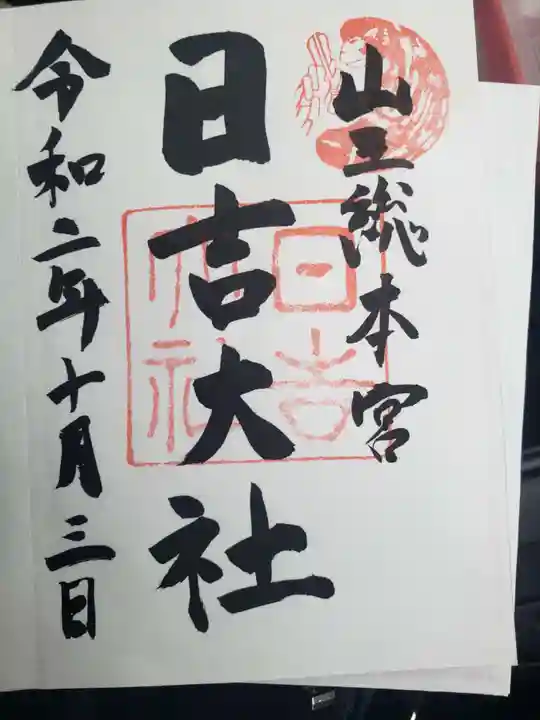 山王総本宮
日吉大社
日吉大社
令和二年十月三日